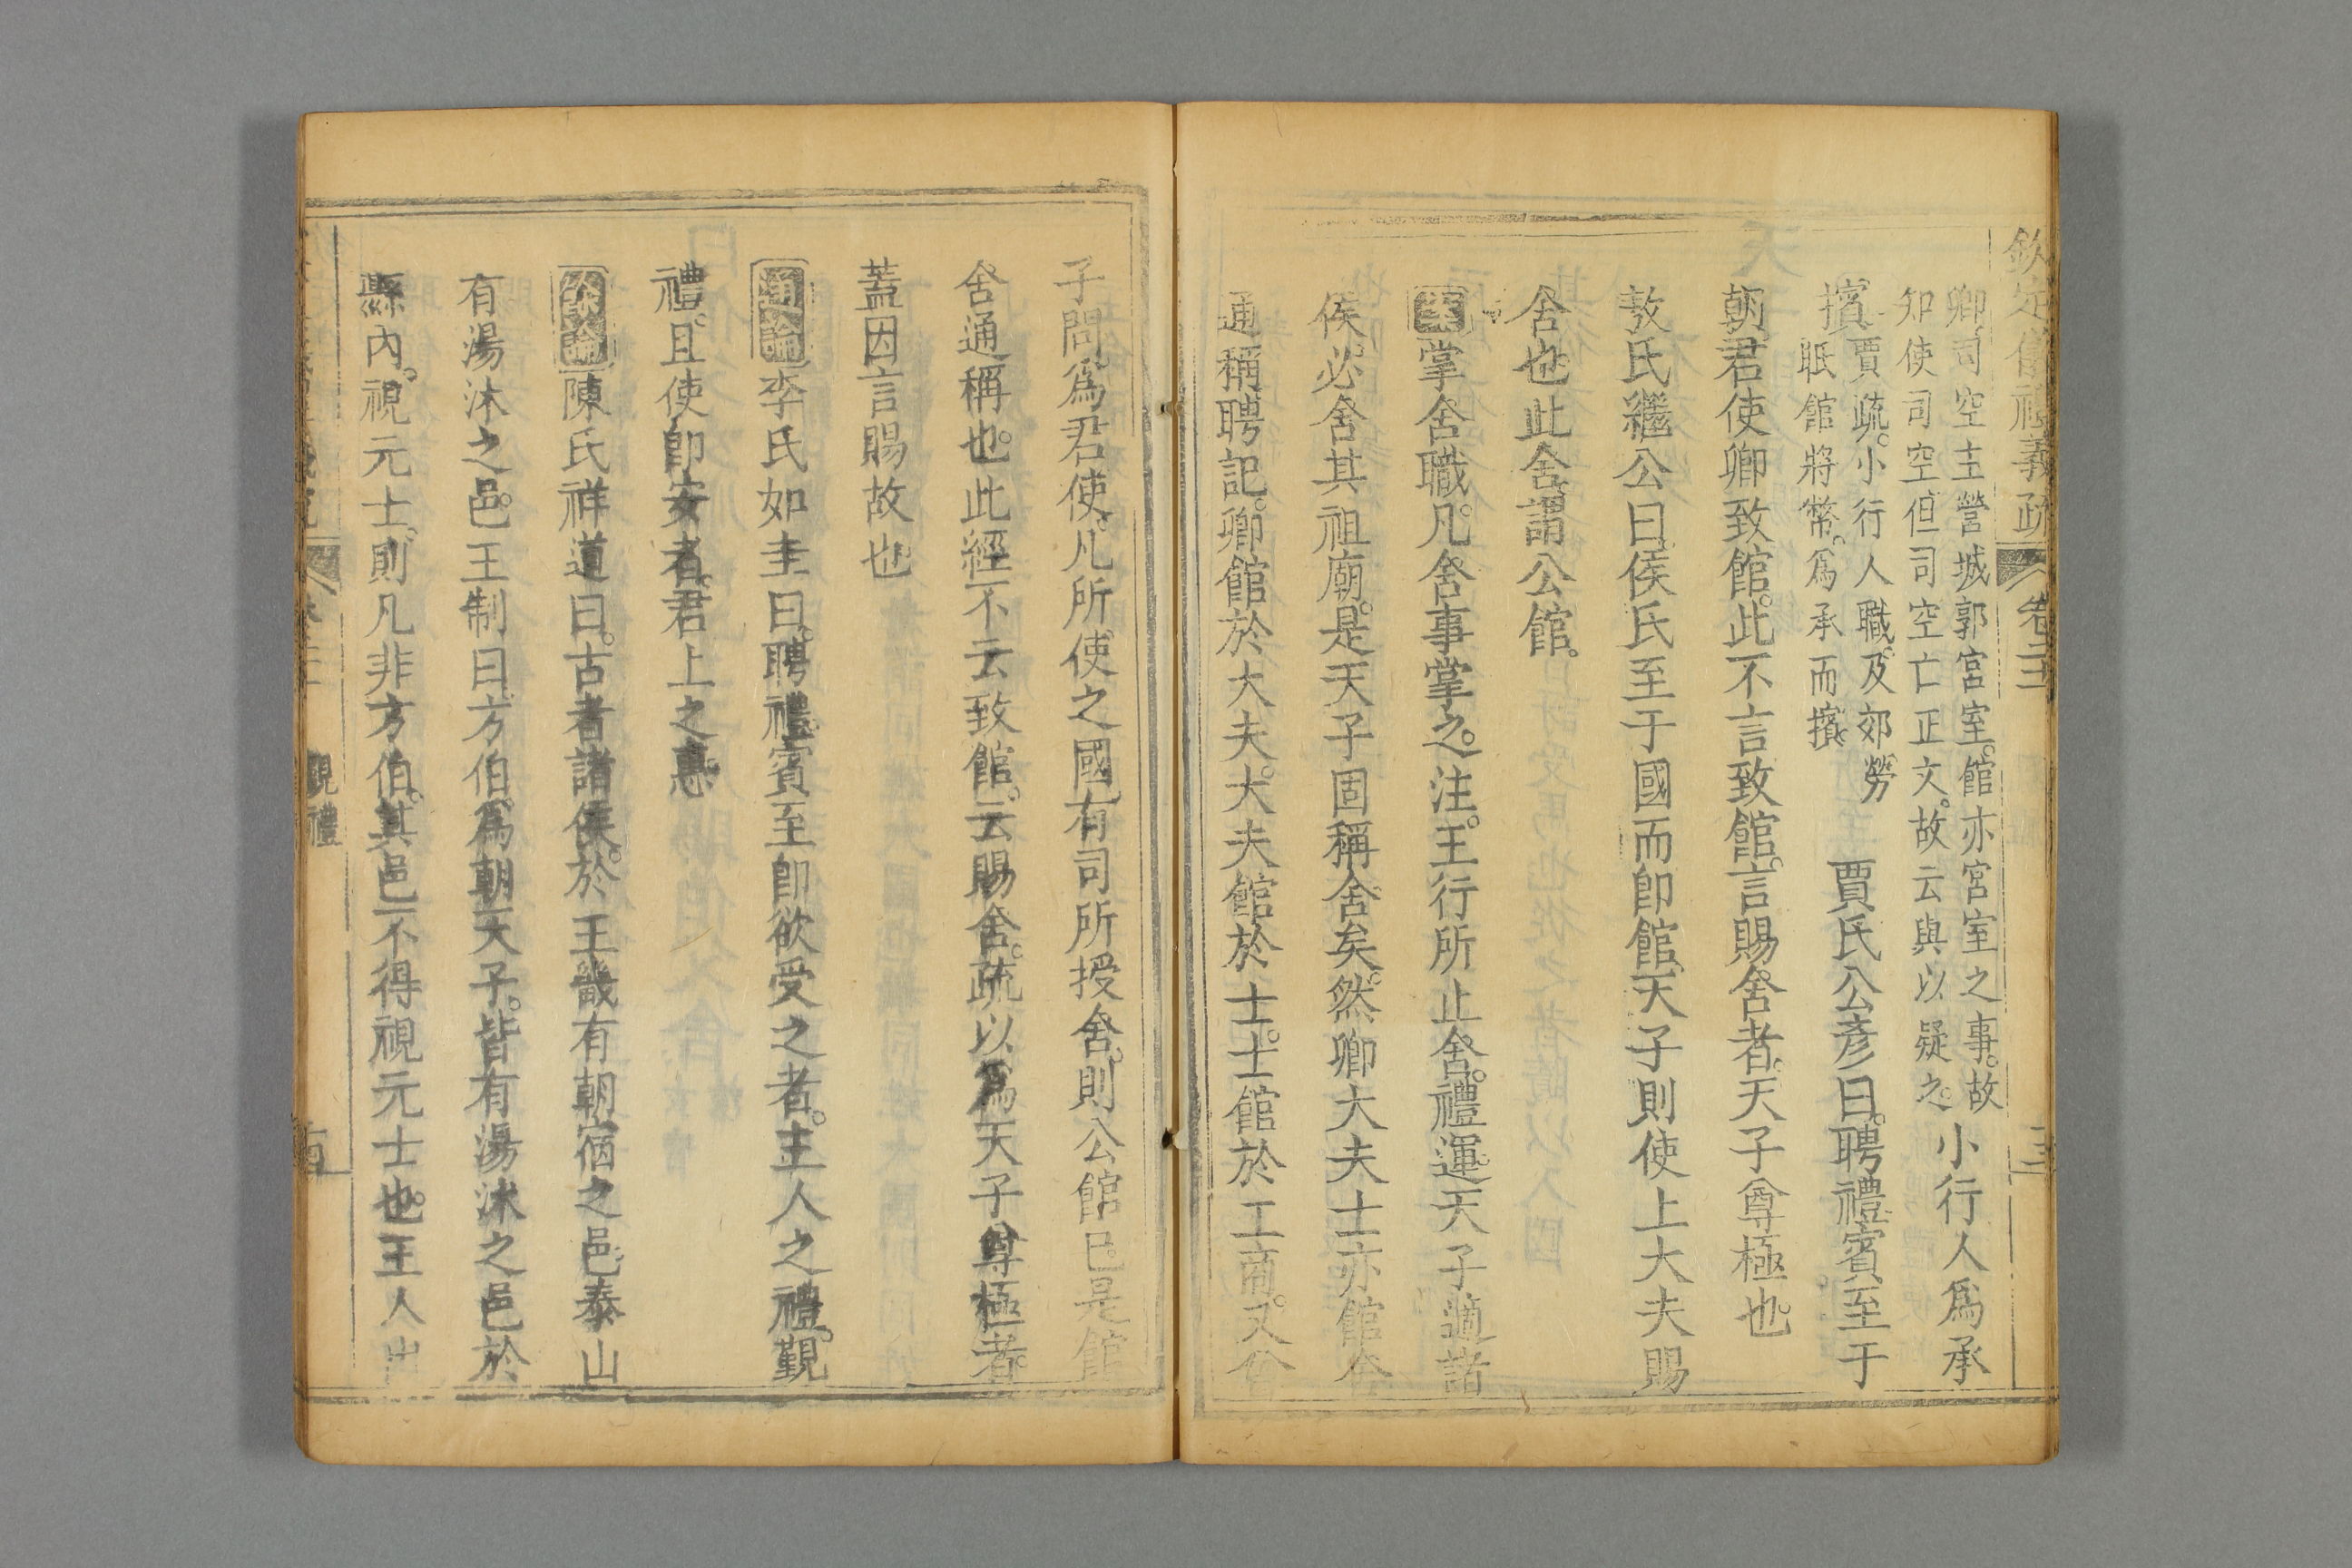 欽定儀禮義疏 卷二十
卿司空主營城郭宮室館亦宮室之事故
知使司空但司空亡正文故云與以疑之小行人爲承
擯賈疏小行人職及郊勞
眂館將幣爲承而擯賈氏公彥曰聘禮賓至于
朝君使卿致館此不言致館言賜舍者天子尊極也
敖氏繼公曰侯氏至于國而即館天子則使上大夫賜
舍也此舍謂公館
案掌舍職凡舍事掌之注王行所止舍禮運天子適諸
侯必舍其祖廟是天子固稱舍矣然卿大夫士亦館舍
通稱聘記卿館於大夫大夫館於士士館於工商又曾
子問爲君使凡所使之國有司所授舍則公館已是館
舍通稱也此經不云致館云賜舍疏以爲天子尊極者
蓋因言賜故也
通論李氏如圭曰聘禮賓至即欲受之者主人之禮覲
禮且使即安者君上之惠
餘論陳氏祥道曰古者諸侯於王畿有朝宿之邑泰山
有湯沐之邑王制曰方伯爲朝天子皆有湯沐之邑於
縣內視元士則凡非方伯其邑不得視元士也王人出
覲禮